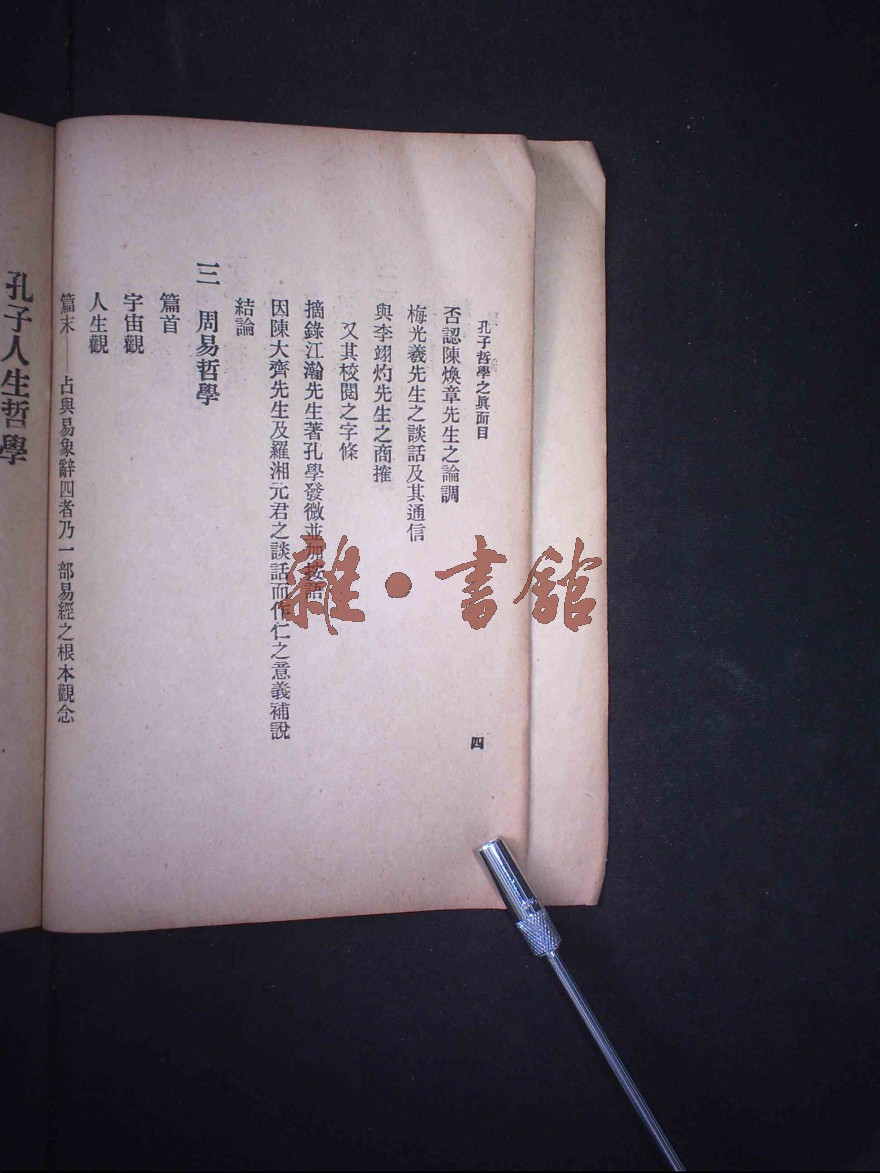 孔子哲學之眞面目
四
否認陳煥章先生之論調
梅光羲先生之談話及其通信
與李翊灼先生之商搉
又其校閱之字條
摘錄江瀚先生著孔學發微並加按語
因陳大齊先生及羅湘元君之談話而作仁之意義補說
結論
三 周易哲學
篇首
宇宙觀
人生觀
篇末——占與易象辭四者乃一部易經之根本觀念
孔子人生哲學
雜·書館